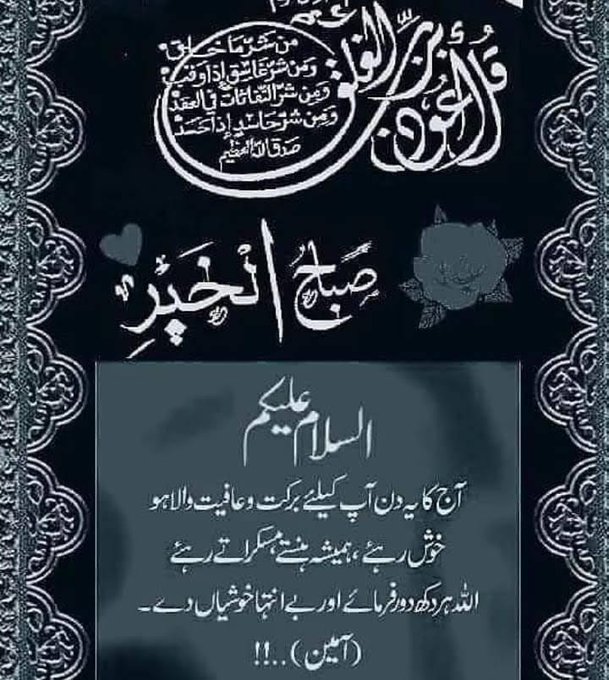 قل أعوذ برب الفلق
من شر ما خلق
ومن شر غاسق إذا وقب
ومن شر النفاثات في العقد
ومن شر حاسد إذا حسد
صدق الله العظيم
صباح الخير
السلام علیکم
آج کا یہ دن آپ کیلئے برکت و عافیت والا ہو
خوش رہئے ، ہمیشہ ہنستے مسکراتے رہئے
اللہ ہر دکھ دور فرمائے اور بے انتہا خوشیاں دے ۔
(آمین)..!!